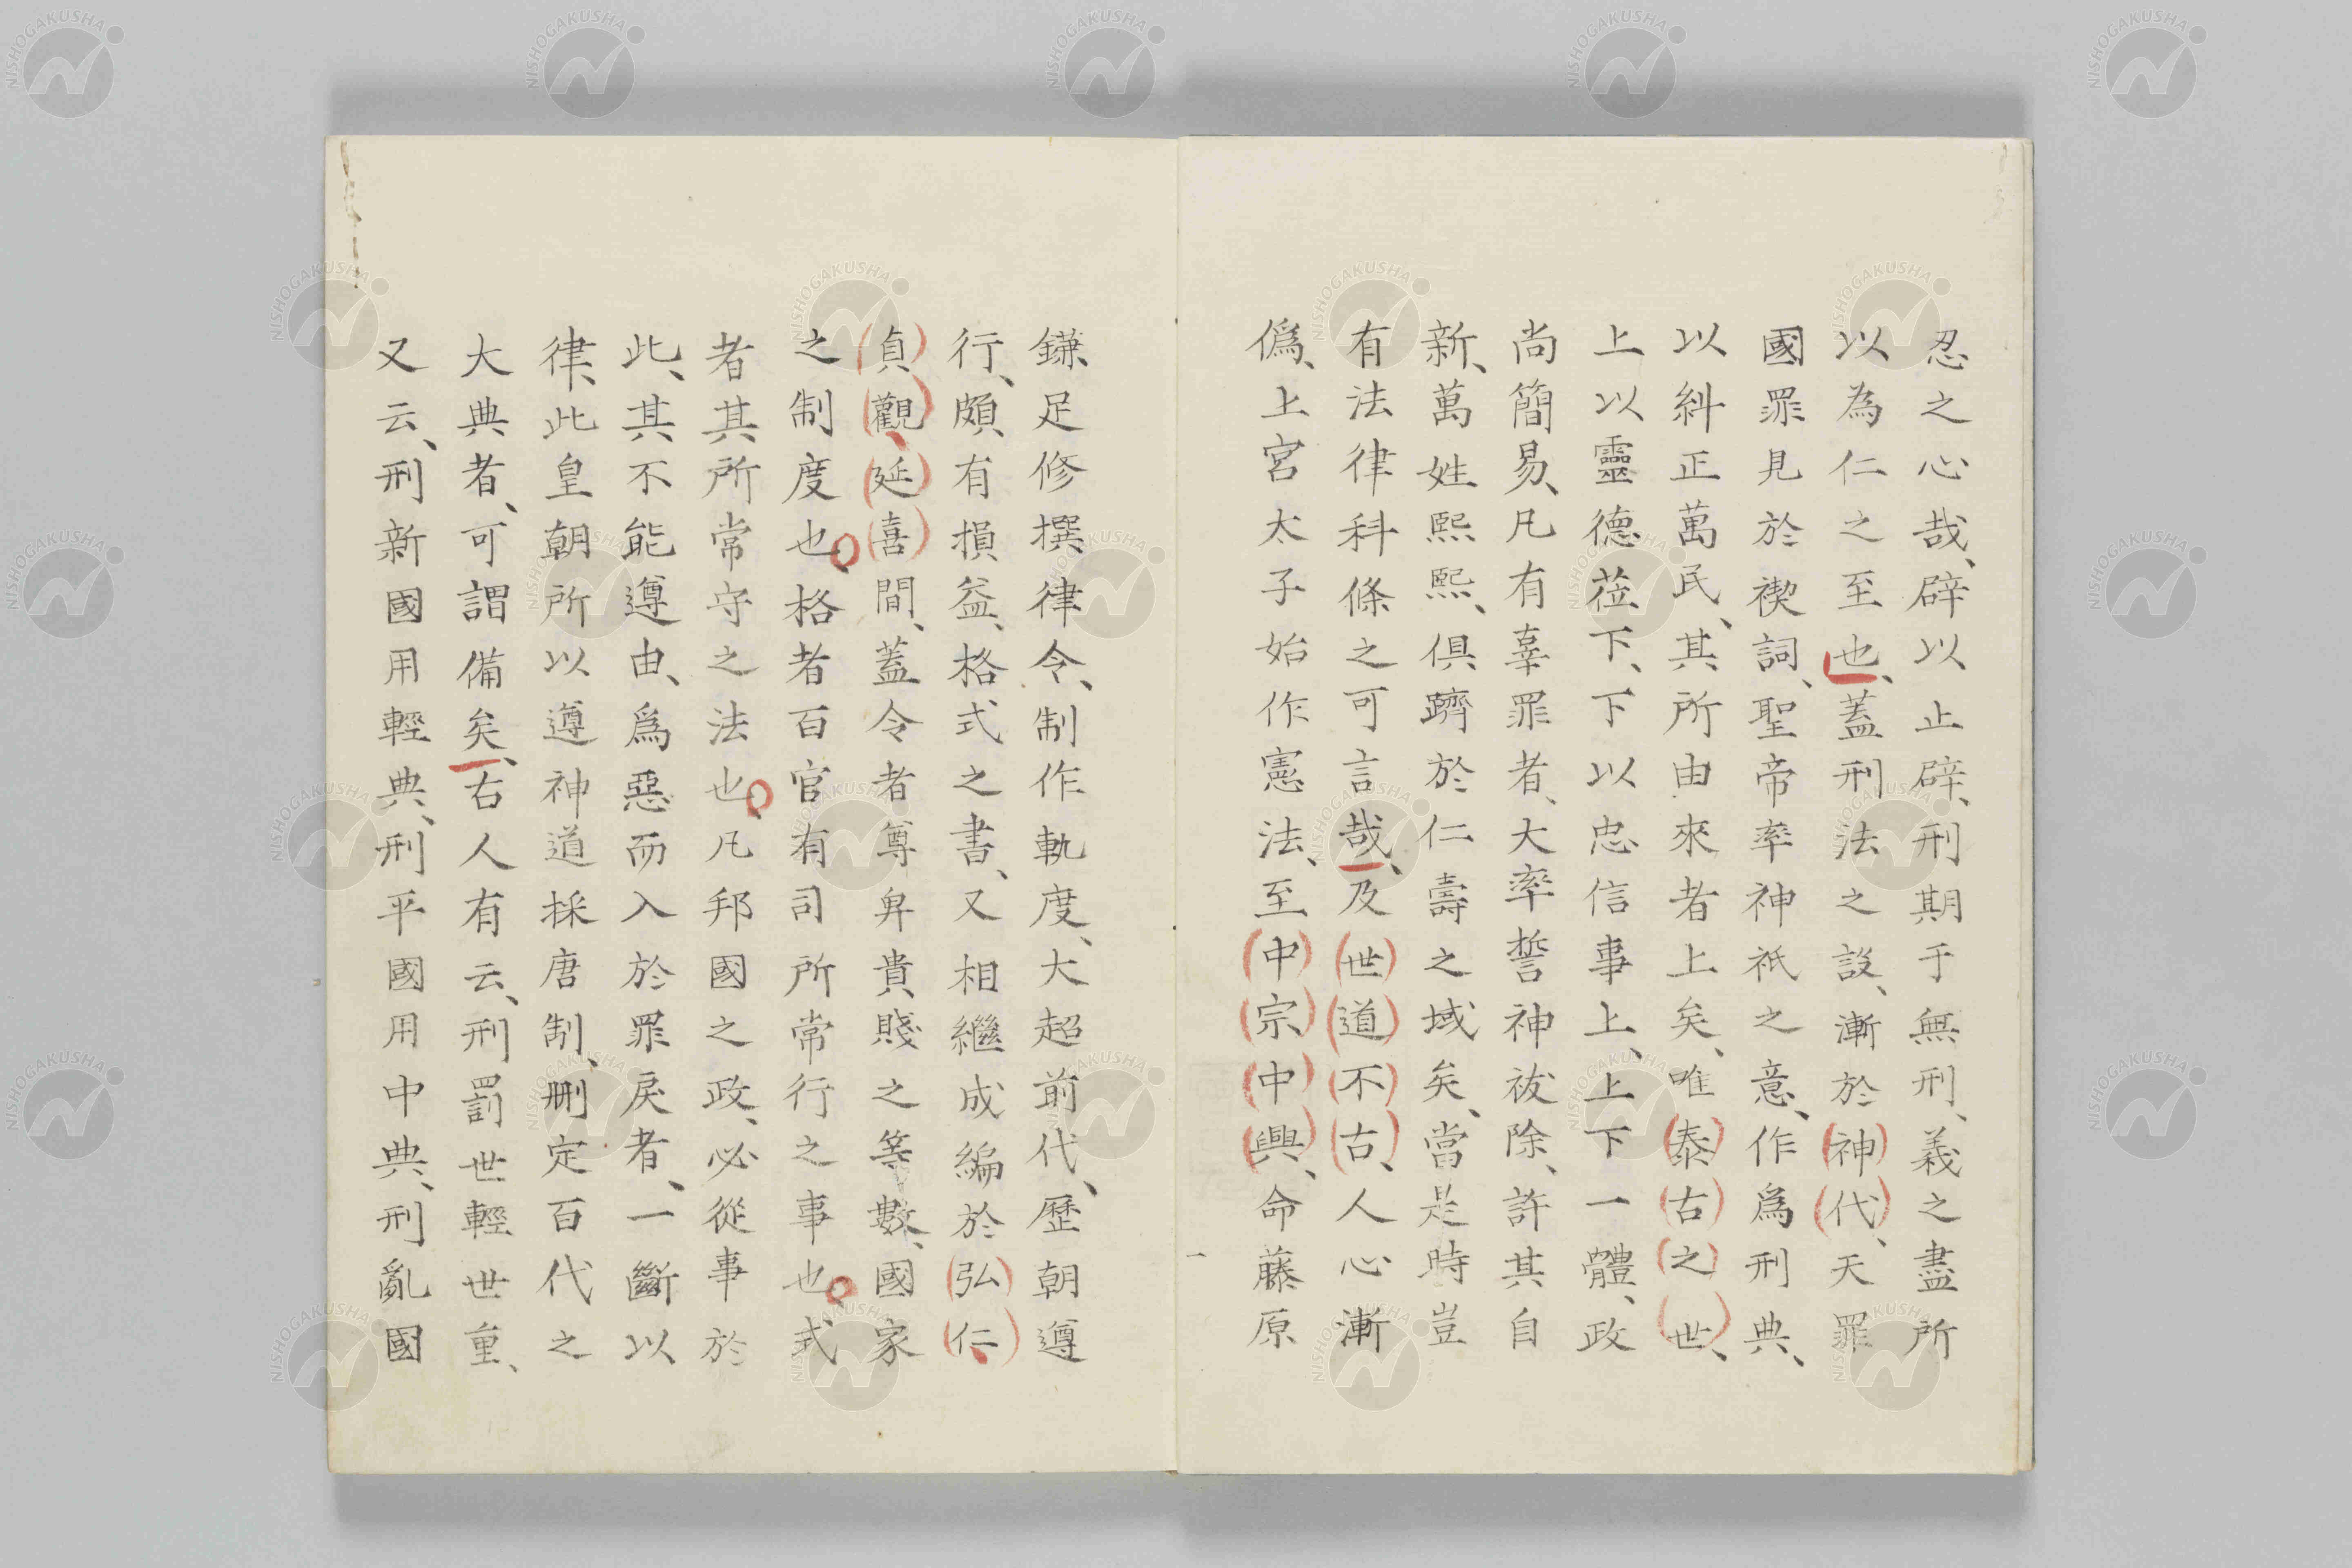 忍之心哉、辟以止辟、刑期于無刑、義之盡所
以為仁之至也、蓋刑法之設、漸於神代、天罪
國罪見於禊詞、聖帝率神祇之意、作爲刑典、
以糾正萬民、其所由來者上矣、唯泰古之世、
上以靈德莅下、下以忠信事上、上下一體、政
尚簡易、凡有辜罪者、大率誓神祓除、許其自
新、萬姓熙熙、俱躋於仁壽之域矣、當是時豈
有法律科條之可言哉、及世道不古、人心漸
僞、上宮太子始作憲法、至中宗中興、命藤原
鎌足修撰律令、制作軌度、大超前代、歷朝遵
行、頗有損益、格式之書、又相繼成編於弘仁、
貞觀、延喜間、蓋令者尊卑貴賤之等數、國家
之制度也、格者百官有司所常行之事也、式
者其所常守之法也、凡邦國之政、必從事於
此、其不能遵由、爲惡而入於罪戾者、一斷以
律、此皇朝所以遵神道採唐制、刪定百代之
大典者、可謂備矣、右人有云、刑罰世輕世重、
又云、刑新國用輕典、刑平國用中典、刑亂國
一
NISHOGAKUSHA